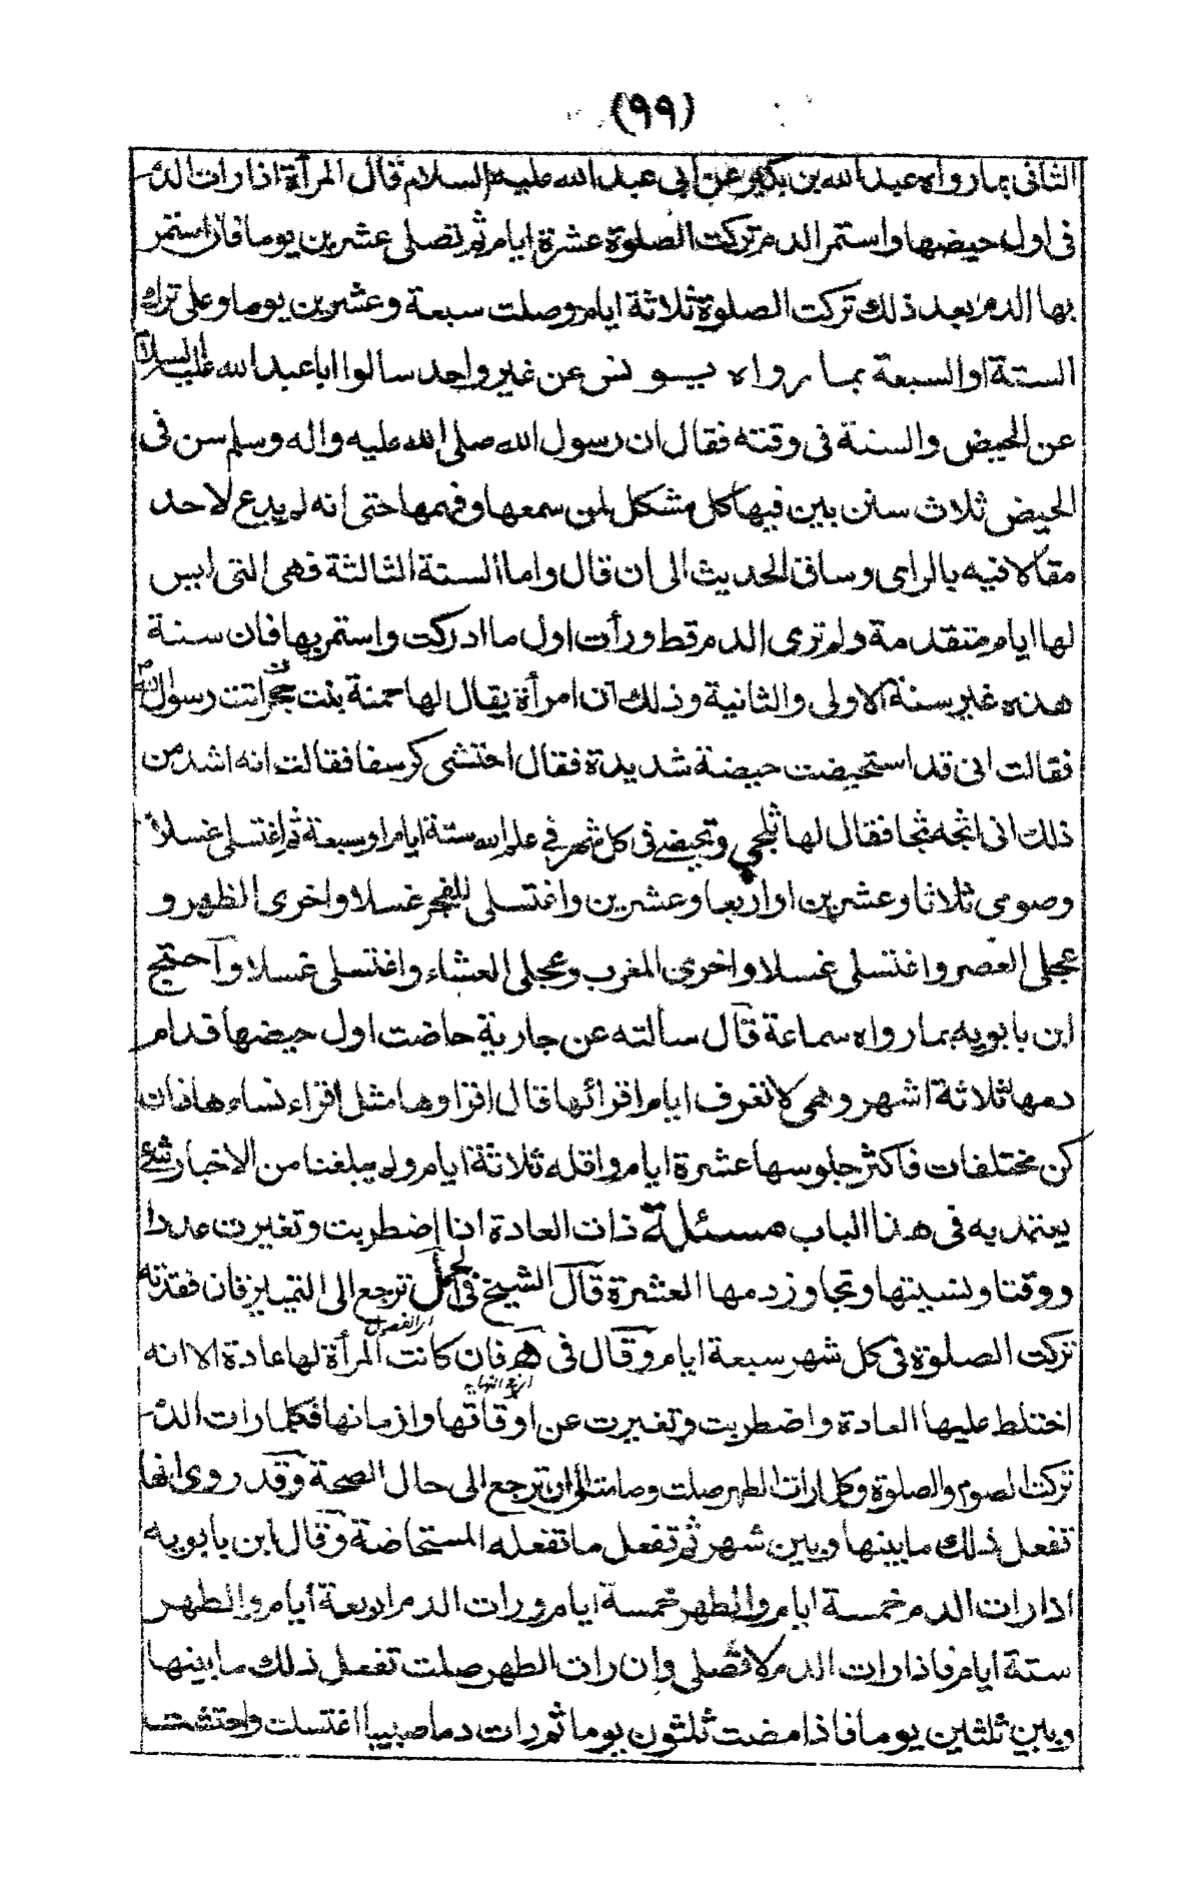 (٩٩)
الثانى بما رواه عبد الله بن بكير عن ابى عبد الله عليه السلام قال المرأة اذا رات الدم
فى اول حيضها واستمر الدم تركت الصلوة عشرة ايام ثم تصلى عشرين يوما فان استمر
بها الدم بعد ذلك تركت الصلوة ثلاثة ايام وصلت سبعة وعشرين يوما وعلى ترك
الستة او السبعة بما رواه يونس عن غير واحد سالوا ابا عبد الله عليه السلام
عن الحيض والسنة فى وقته فقال ان رسول الله صلى الله عليه واله وسلم سن فى
الحيض ثلاث سنن بين فيها كل مشكل لمن سمعها وفهمها حتى انه لم يدع لاحد
مقالا فيه بالراى وساق الحديث الى ان قال واما السنة الثالثة فهى التى ليس
لها ايام متقدمة ولم ترى الدم قط ورأت اول ما ادركت واستمر بها فان سنة
هذه غير سنة الاولى والثانية وذلك ان امرأة يقال لها حمنة بنت جحش اتت رسول الله ص
فقالت انى قد استحيضت حيضة شديدة فقال احتشى كرسفا فقالت انه اشد من
ذلك انى اثجه ثجا فقال لها تلجمى وتحيضى فى كل شهر فى علم الله ستة ايام او سبعة ثم اغتسلى غسلا
وصومى ثلاثا وعشرين او اربعا وعشرين واغتسلى للفجر غسلا واخرى الظهر و
عجلى العصر واغتسلى غسلا واخرى المغرب وعجلى العشاء واغتسلى غسلا واحتج
ابن بابويه بما رواه سماعة قال سألته عن جارية حاضت اول حيضها فدام
دمها ثلاثة اشهر وهى لا تعرف ايام اقرائها قال اقراوها مثل اقراء نساءها فان
كن مختلفات فاكثر جلوسها عشرة ايام واقله ثلاثة ايام ولم يبلغنا من الاخبار شئ
يعتمد به فى هذا الباب مسئلة ذات العادة اذا اضطربت وتغيرت عددا
ووقتا ونسيتها وتجاوز دمها العشرة قال الشيخ فى الجمل ترجع الى التميز فان فقدته
تركت الصلوة فى كل شهر سبعة ايام وقال فى يه فان كانت المرأة لها عادة الا انه
اختلط عليها العادة واضطربت وتغيرت عن اوقاتها وازمانها فكلما رات الدم
تركت الصوم والصلوة وكلما رات الطهر صلت وصامت الى ان ترجع الى حال الصحة وقد روى انها
تفعل ذلك ما بينها وبين شهر ثم تفعل ما تفعله المستحاضة وقال ابن بابويه
اذا رات الدم خمسة ايام والطهر خمسة ايام ورات الدم اربعة ايام والطهر
ستة ايام فاذا رات الدم لا تصلى وان رات الطهر صلت تفعل ذلك ما بينها
وبين ثلثين يوما فاذا مضت ثلثون يوما ثم رات دما صبيبا اغتسلت واحتشت